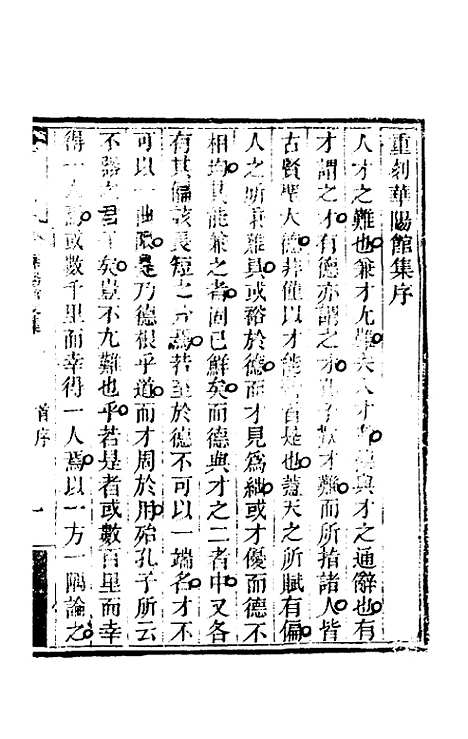 重刻華陽館集序
人才之難也兼才尤難夫人才者德與才之通辭也有
才謂之才有德亦謂之才孔子歎才難而所指諸人皆
古賢聖大德非僅以才能名者是也蓋天之所賦有偏
人之所秉難具或裕於德而才見為絀或才優而德不
相均其能兼之者固已鮮矣而德與才之二者中又各
有其偏該長短之分焉若至於德不可以一端名才不
可以一曲限是乃德根乎道而才周於用殆孔子所云
不器之君子矣豈不尤難也乎若是者或數百里而幸
得一人焉或數千里而幸得一人焉以一方一隅論之
首序
一